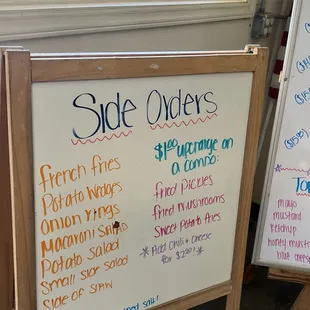 Side Orders
french fries
Potato Wedges
Onion Rings
Macaroni Salad
Potato Salad
Small side salad
Side of slaw
$1.00 upcharge on
a combo:
fried Pickles
fried mushrooms
Sweet Potato fries
*Add Chili + Cheese *
for $2.00!
salt!
mayo
mustard
Ketchup
honey mustard